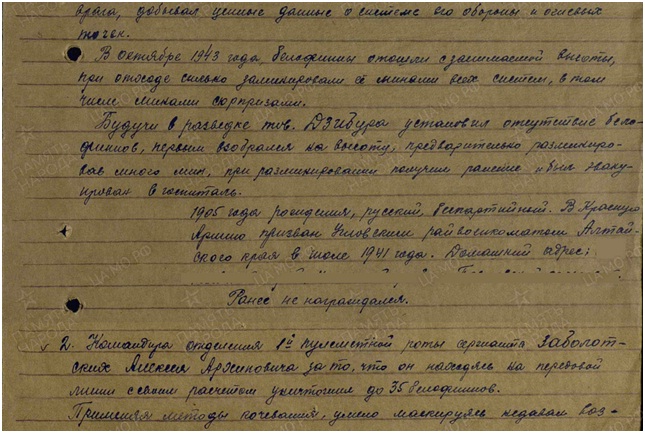 врага, добывал ценные данные о системе его обороны и огневых
точек.
В октябре 1943 года, белофинны отошли с занимаемой высоты,
при отходе сильно заминировали её минами всех систем, в том
числе минами сюрпризами.
Будучи в разведке тов. Дзибура установил отсутствие бело-
финнов, первым взобрался на высоту, предварительно разминиро-
вав много мин, при разминировании получил ранение и был эваку-
ирован в госпиталь.
1905 года рождения, русский, беспартийный. В Красную
Армию призван Угловским райвоенкоматом Алтай-
ского края в июле 1941 года. Домашний адрес:
Ранее не награждался.
2. Командира отделения 1й пулеметной роты сержанта Заболот-
ских Алексея за то, что он находясь на передовой
линии с своим расчетом уничтожил до 35 белофиннов.
Применяя методы кочевания, умело маскируясь недавал воз-